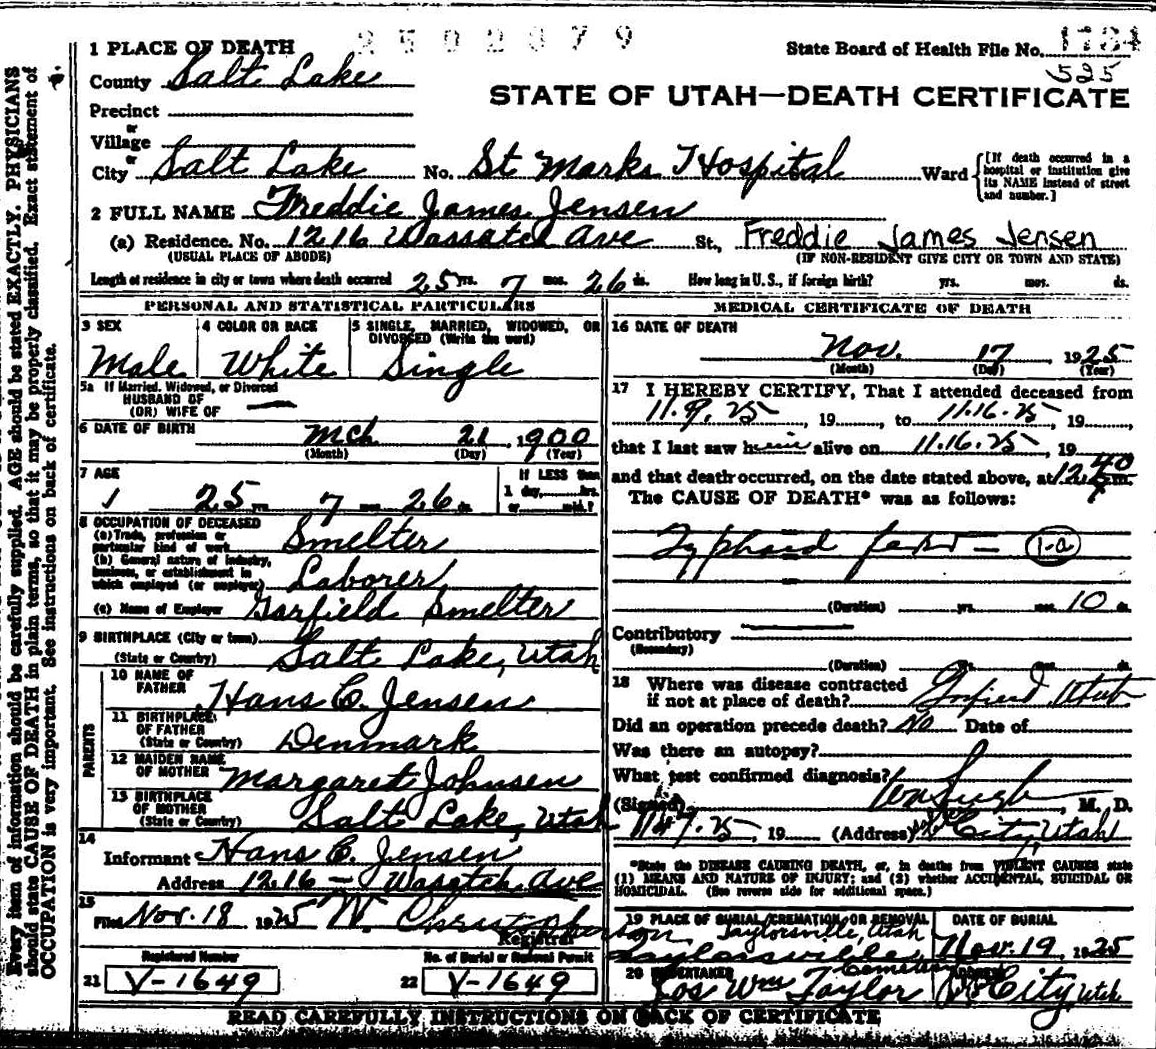 1 PLACE OF DEATH 2502879 State Board of Health File No. 1784
County Salt Lake 525
STATE OF UTAH—DEATH CERTIFICATE
Precinct
or
Village
or
City Salt Lake No. St Marks Hospital Ward [If death occurred in a hospital or institution give its NAME instead of street and number.]
2 FULL NAME Freddie James Jensen
(a) Residence. No. 1216 Wassatch Ave St., Freddie James Jensen
(USUAL PLACE OF ABODE) (IF NON-RESIDENT GIVE CITY OR TOWN AND STATE)
Length of residence in city or town where death occurred 25 yrs. 7 mos. 26 ds. How long in U.S., if foreign birth? yrs. mos. ds.
PERSONAL AND STATISTICAL PARTICULARS
3 SEX 4 COLOR OR RACE 5 SINGLE, MARRIED, WIDOWED, OR
DIVORCED (Write the word)
Male White Single
5a If Married, Widowed, or Divorced
HUSBAND OF
(OR) WIFE OF —
6 DATE OF BIRTH Mch 21, 1900
(Month) (Day) (Year)
7 AGE If LESS than
1 day, hrs.
25 yrs 7 mos 26 ds. or min.?
8 OCCUPATION OF DECEASED
(a) Trade, profession or
particular kind of work Smelter
(b) General nature of industry,
business, or establishment in
which employed (or employer) Laborer
(c) Name of Employer Garfield Smelter
9 BIRTHPLACE (City or town)
(State or Country) Salt Lake, Utah
PARENTS
10 NAME OF
FATHER Hans C. Jensen
11 BIRTHPLACE
OF FATHER
(State or Country) Denmark
12 MAIDEN NAME
OF MOTHER Margaret Johnsen
13 BIRTHPLACE
OF MOTHER
(State or Country) Salt Lake, Utah
14
Informant Hans C. Jensen
Address 1216 — Wasatch Ave
15
Filed Nov. 18 1925 W. Christopherson
Registrar
Registered Number No. of Burial or Removal Permit
21 V-1649 22 V-1649
MEDICAL CERTIFICATE OF DEATH
16 DATE OF DEATH
Nov. 17, 1925
(Month) (Day) (Year)
17 I HEREBY CERTIFY, That I attended deceased from
11.9.25, 19 , to 11.16.25, 19 ,
that I last saw him alive on 11.16.25, 19
and that death occurred, on the date stated above, at 12.40 m.
The CAUSE OF DEATH* was as follows:
Typhoid fever — 1-a
(Duration) yrs. mos. 10 ds.
Contributory —
(Secondary)
(Duration) Yrs. mos. ds.
18 Where was disease contracted
if not at place of death? Garfield, Utah
Did an operation precede death? No Date of
Was there an autopsy?
What test confirmed diagnosis?
(Signed) , M. D.
11-17-25, 19 (Address) City, Utah
*State the DISEASE CAUSING DEATH, or, in deaths from VIOLENT CAUSES state
(1) MEANS AND NATURE OF INJURY; and (2) whether ACCIDENTAL, SUICIDAL OR
HOMICIDAL. (See reverse side for additional space.)
19 PLACE OF BURIAL, CREMATION, OR REMOVAL DATE OF BURIAL
Taylorsville, Utah
Taylorsville Cemetery Nov. 19 1925
20 UNDERTAKER ADDRESS
Jos Wm Taylor City, Utah
READ CAREFULLY INSTRUCTIONS ON BACK OF CERTIFICATE
Every item of information should be carefully supplied. AGE should be stated EXACTLY. PHYSICIANS
should state CAUSE OF DEATH in plain terms, so that it may be properly classified. Exact statement of
OCCUPATION is very important. See instructions on back of certificate.